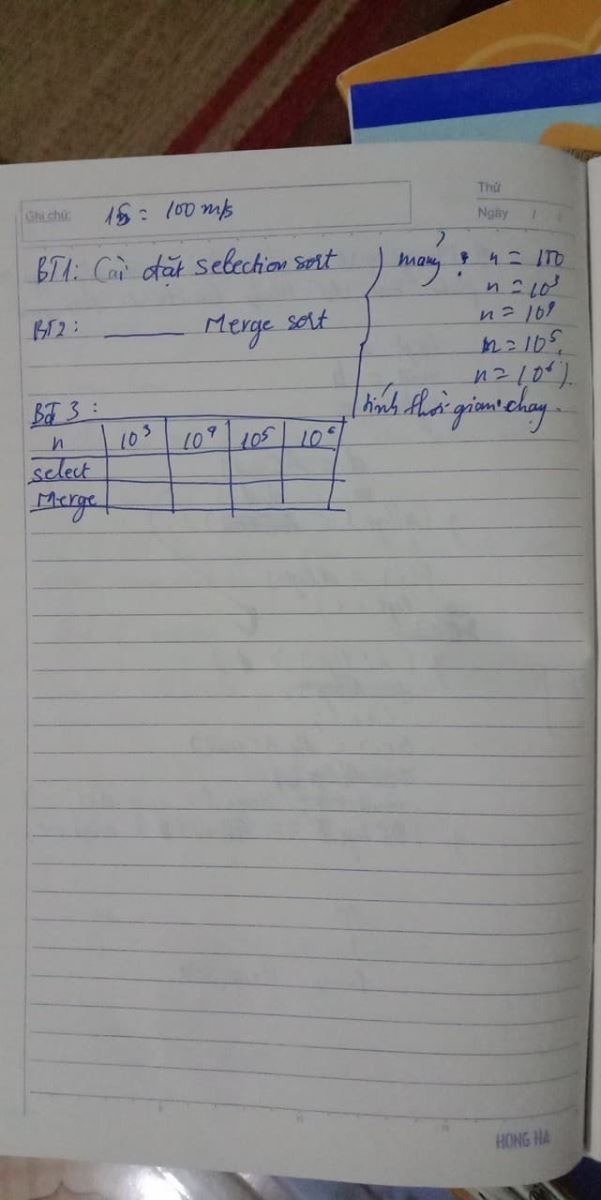 Ghi chú: 1s = 100 m/s
Thứ
Ngày / /
BT1: Cài đặt selection sort
BT2: ______ Merge sort
mảng: n = 100
n = 10³
n = 10⁴
n = 10⁵
n = 10⁶
tính thời gian chạy.
BT 3:
n 10³ 10⁴ 10⁵ 10⁶
select
Merge
HONG HA